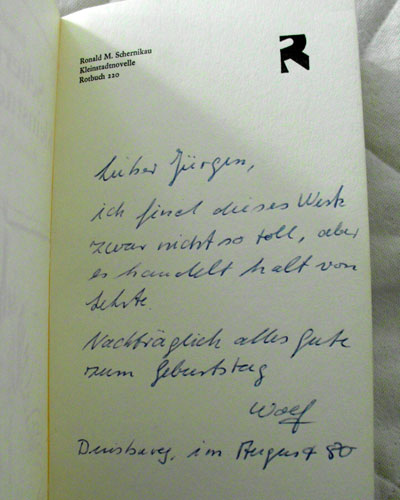 Ronald M. Schernikau
Kleinstadtnovelle
Rotbuch 220
R
Lieber Jürgen,
ich find dieses Werk
zwar nicht so toll, aber
es handelt halt von
Lehrte.
Nachträglich alles Gute
zum Geburtstag
Wolf
Duisburg, im August 80